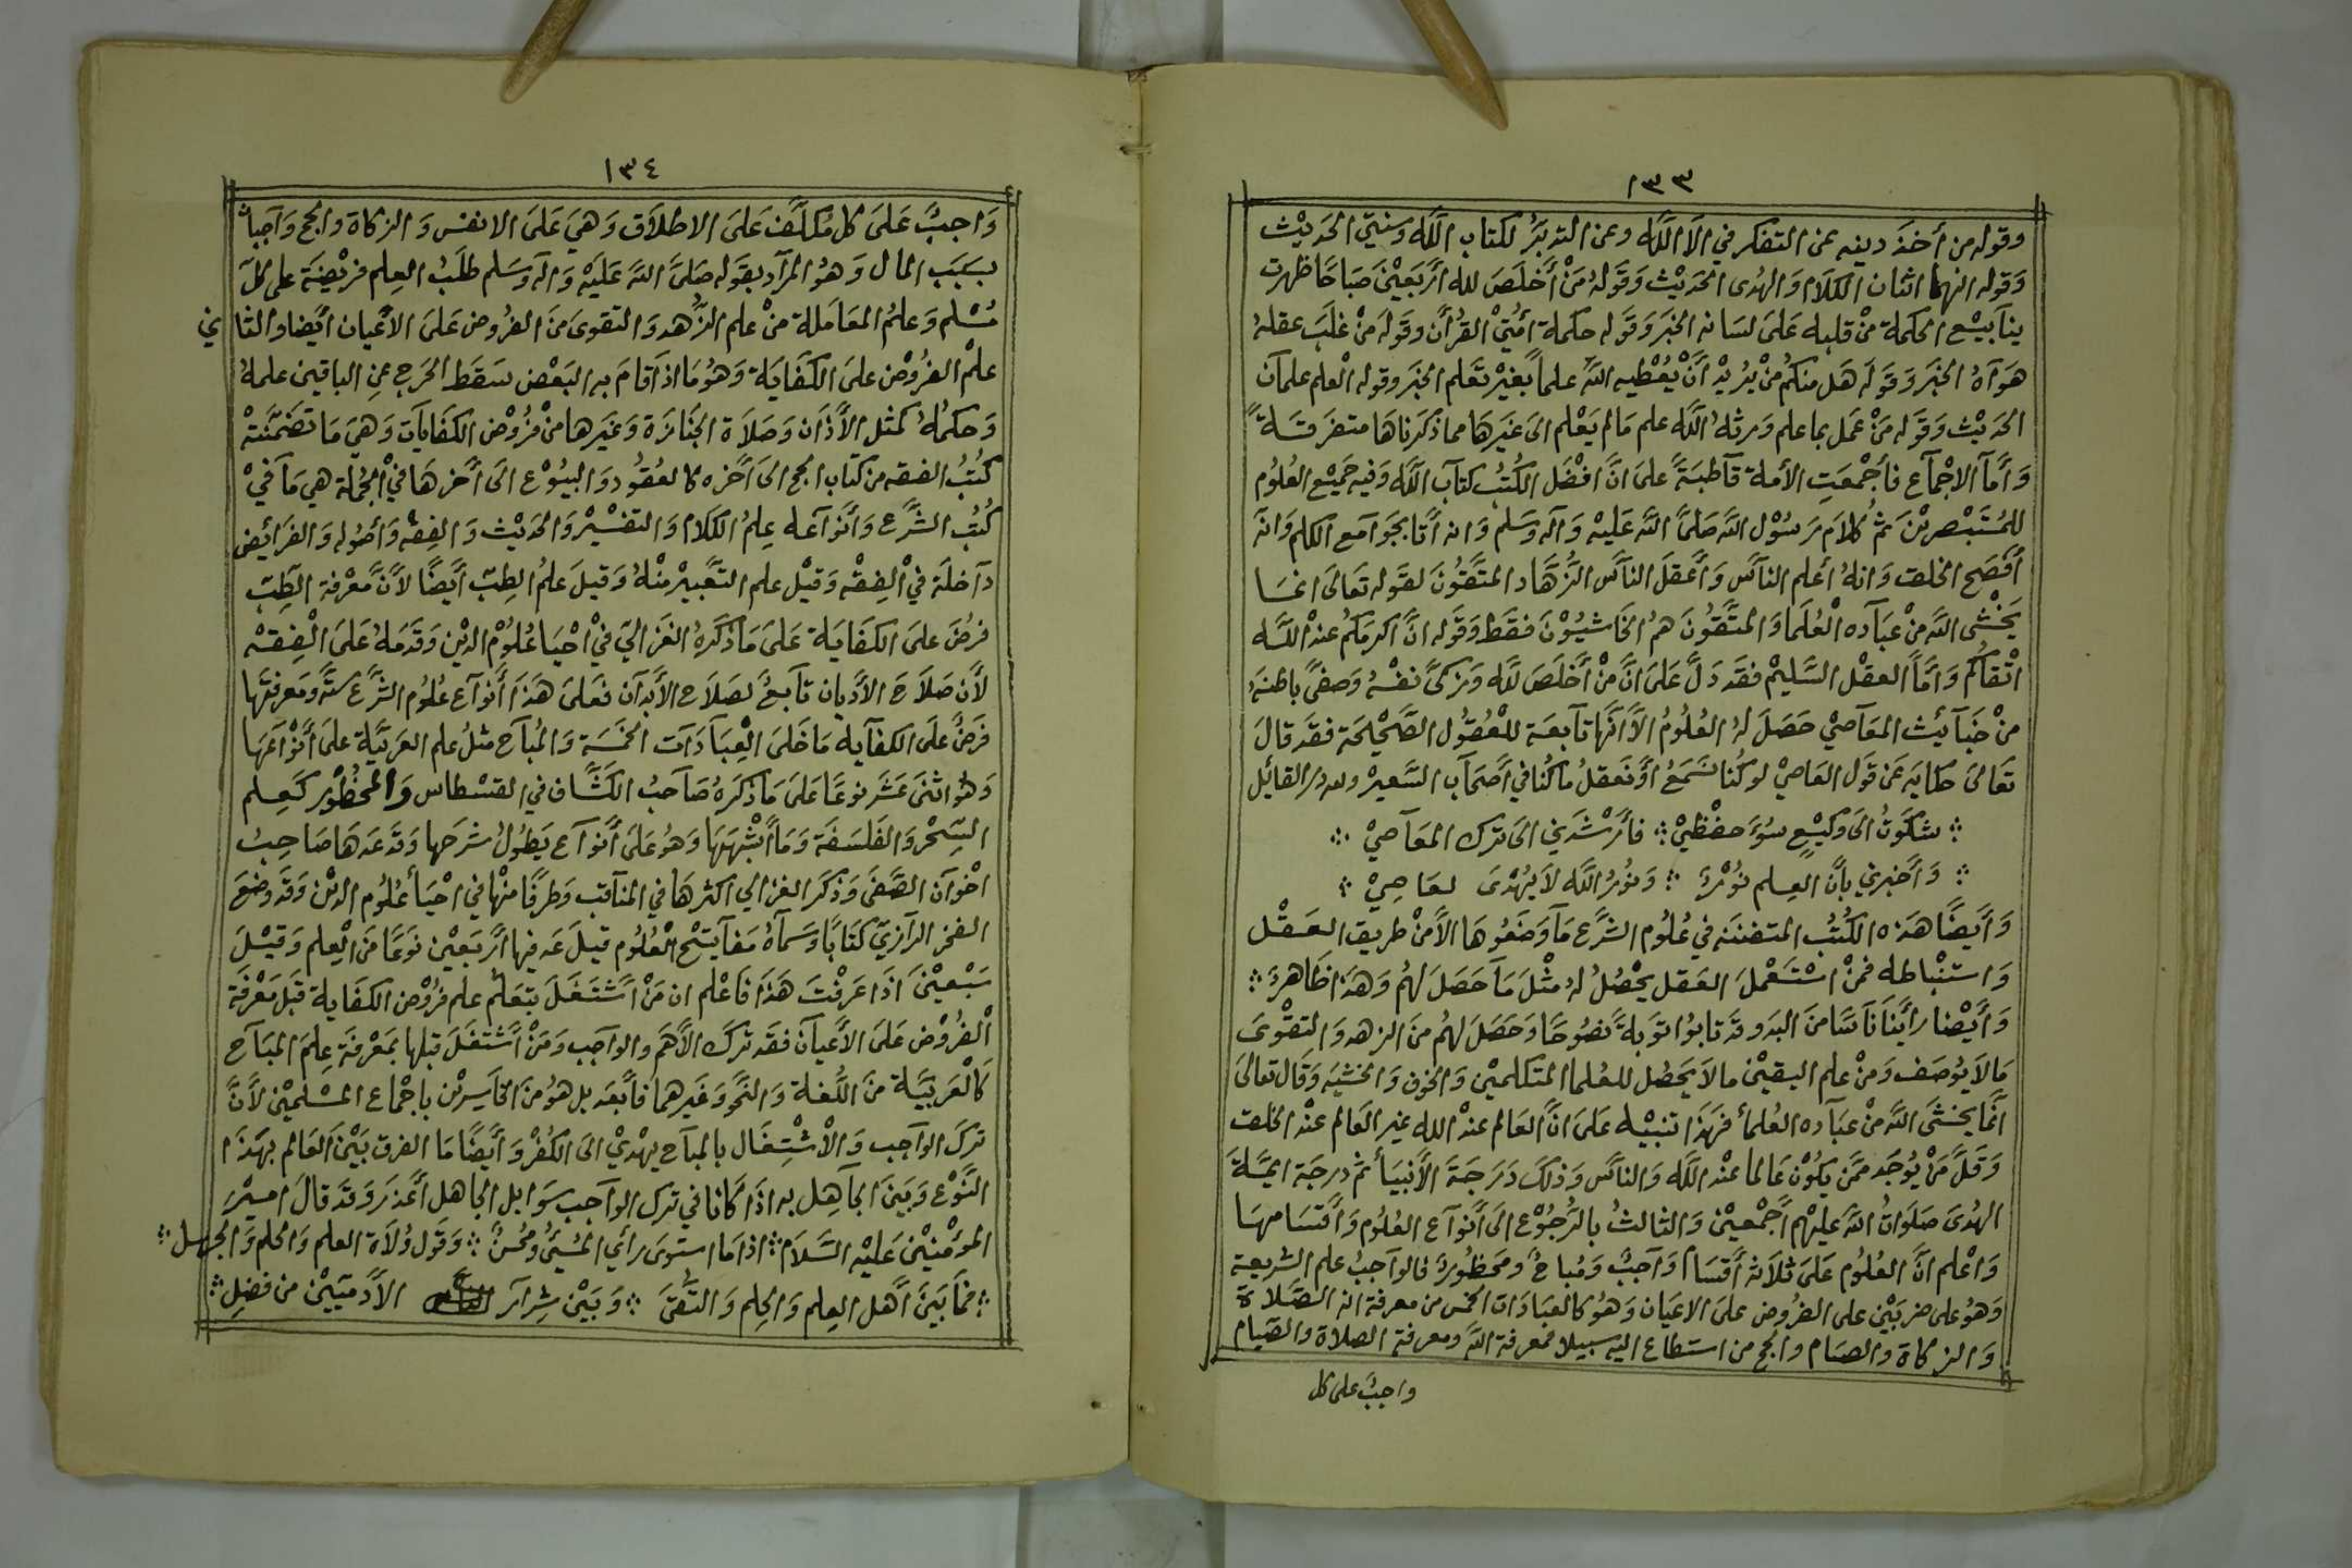 ١٣٣
وقوله من أخذ دينه عن التفكر في الآ الله وعن التدبر لكتاب الله وسنتي الحديث
وقوله انهما اثنان الكلام والهدى الحديث وقوله من أخلص لله أربعين صباحا ظهرت
ينابيع الحكمة من قلبه على لسانه الخبر وقوله حكمة أمتي القرآن وقوله من غلب عقله
هواه الخبر وقوله هل منكم من يريد أن يعطيه الله علما بغير تعلم الخبر وقوله العلم علمان
الحديث وقوله من عمل بما علم ورثه الله علم مالم يعلم الى غيرها مما ذكرناها متفرقة
وأما الاجماع فأجمعت الأمة قاطبة على ان افضل الكتب كتاب الله وفيه جميع العلوم
للمستبصرين ثم كلام رسول الله صلى الله عليه وآله وسلم وانه أتا بجوامع الكلم وانه
أفصح الخلق وانه أعلم الناس وأعقل الناس الزهاد المتقون لقوله تعالى انما
يخشى الله من عباده العلما والمتقون هم الخاشيون فقط وقوله ان اكرمكم عند الله
اتقاكم وأما العقل السليم فقد دل على ان من أخلص لله وزكى نفسه وصفى باطنه
من خبائث المعاصي حصل له العلوم الا انها تابعة للعقول الصحيحة فقد قال
تعالى حكاية عن قول العاصي لو كنا نسمع أو نعقل ما كنا في أصحاب السعير ولله در القائل
شكوت الى وكيع سوء حفظي فأرشدني الى ترك المعاصي
وأخبرني بأن العلم نور ونور الله لا يهدى لعاصي
وأيضا هذه الكتب المتضمنه في علوم الشرع ما وضعوها الا من طريق العقل
واستنباطه فمن استعمل العقل يحصل له مثل ما حصل لهم وهذا ظاهر
وأيضا رأينا ناسا من البدو قد تابوا توبة نصوحا وحصل لهم من الزهد والتقوى
مالا يوصف ومن علم اليقين ما لا يحصل للعلما المتكلمين والخوف والخشيه وقال تعالى
انما يخشى الله من عباده العلمأ فهذا تنبيه على ان العالم عند الله غير العالم عند الخلق
وقل من يوجد ممن يكون عالما عند الله والناس وذلك درجة الأنبيأ ثم درجة ايمة
الهدى صلوات الله عليهم أجمعين والثالث بالرجوع الى أنواع العلوم وأقسامها
واعلم ان العلوم على ثلاثة أقسام واجب ومباح ومحظور فالواجب علم الشريعة
وهو على ضربين على الفروض على الاعيان وهو كالعبادات الخمس من معرفة الله الصلاة
والزكاة والصيام والحج من استطاع اليه سبيلا فمعرفة الله ومعرفة الصلاة والصيام
واجب على كل
١٣٤
واجب على كل مكلف على الاطلاق وهي على الانفس والزكاة والحج واجبا
بسبب المال وهو المراد بقوله صلى الله عليه وآله وسلم طلب العلم فريضة على كل
مسلم وعلم المعاملة من علم الزهد والتقوى من الفروض على الأعيان أيضا والثاني
علم الفروض على الكفاية وهو ما اذا قام به البعض سقط الحرج عن الباقين علمه
وحكمه كمثل الأذان وصلاة الجنازة وغيرها من فروض الكفايات وهي ما تضمنته
كتب الفقه من كتاب الحج الى آخره كالعقود والبيوع الى آخرها في الجملة هي ما في
كتب الشرع وأنواعه علم الكلام والتفسير والحديث والفقه وأصوله والفرائض
داخلة في الفقه وقيل علم التعبير منه وقيل علم الطب أيضا لأن معرفة الطب
فرض على الكفاية على ما ذكره الغزالي في احيا علوم الدين وقدمه على الفقه
لأن صلاح الأديان تابع لصلاح الأبدان فعلى هذا أنواع علوم الشرع ستة ومعرفتها
فرض على الكفايه ما خلى العبادات الخمسة والمباح مثل علم العربية على أنواعها
وهو اثنى عشر نوعا على ما ذكره صاحب الكشاف في القسطاس والمحظور كعلم
السحر والفلسفة وما أشبهها وهو على أنواع يطول شرحها وقد عدها صاحب
اخوان الصفى وذكر الغزالي اكثرها في المناقب وطرفا منها في احيأ علوم الدين وقد وضع
الفخر الرازي كتابا وسماه مفاتيح العلوم قيل عد فيها أربعين نوعا من العلم وقيل
سبعين اذا عرفت هذا فاعلم ان من اشتغل بتعلم علم فروض الكفاية قبل معرفة
الفروض على الأعيان فقد ترك الأهم والواجب ومن أشتغل قبلها بمعرفة علم المباح
كالعربية من اللغة والنحو وغيرهما فأبعد بل هو من الخاسرين باجماع المسلمين لأن
ترك الواجب والاشتغال بالمباح يهدي الى الكفر وأيضا ما الفرق بين العالم بهذا
النوع وبين الجاهل به اذا كانا في ترك الواجب سوا بل الجاهل أعذر وقد قال امير
المؤمنين عليه السلام اذا ما استوى رأي المسيئ ومحسن وقول ولاة العلم والحلم والجهل
فما بين أهل العلم والحلم والتقى وبين شرار الأدميين من فضل